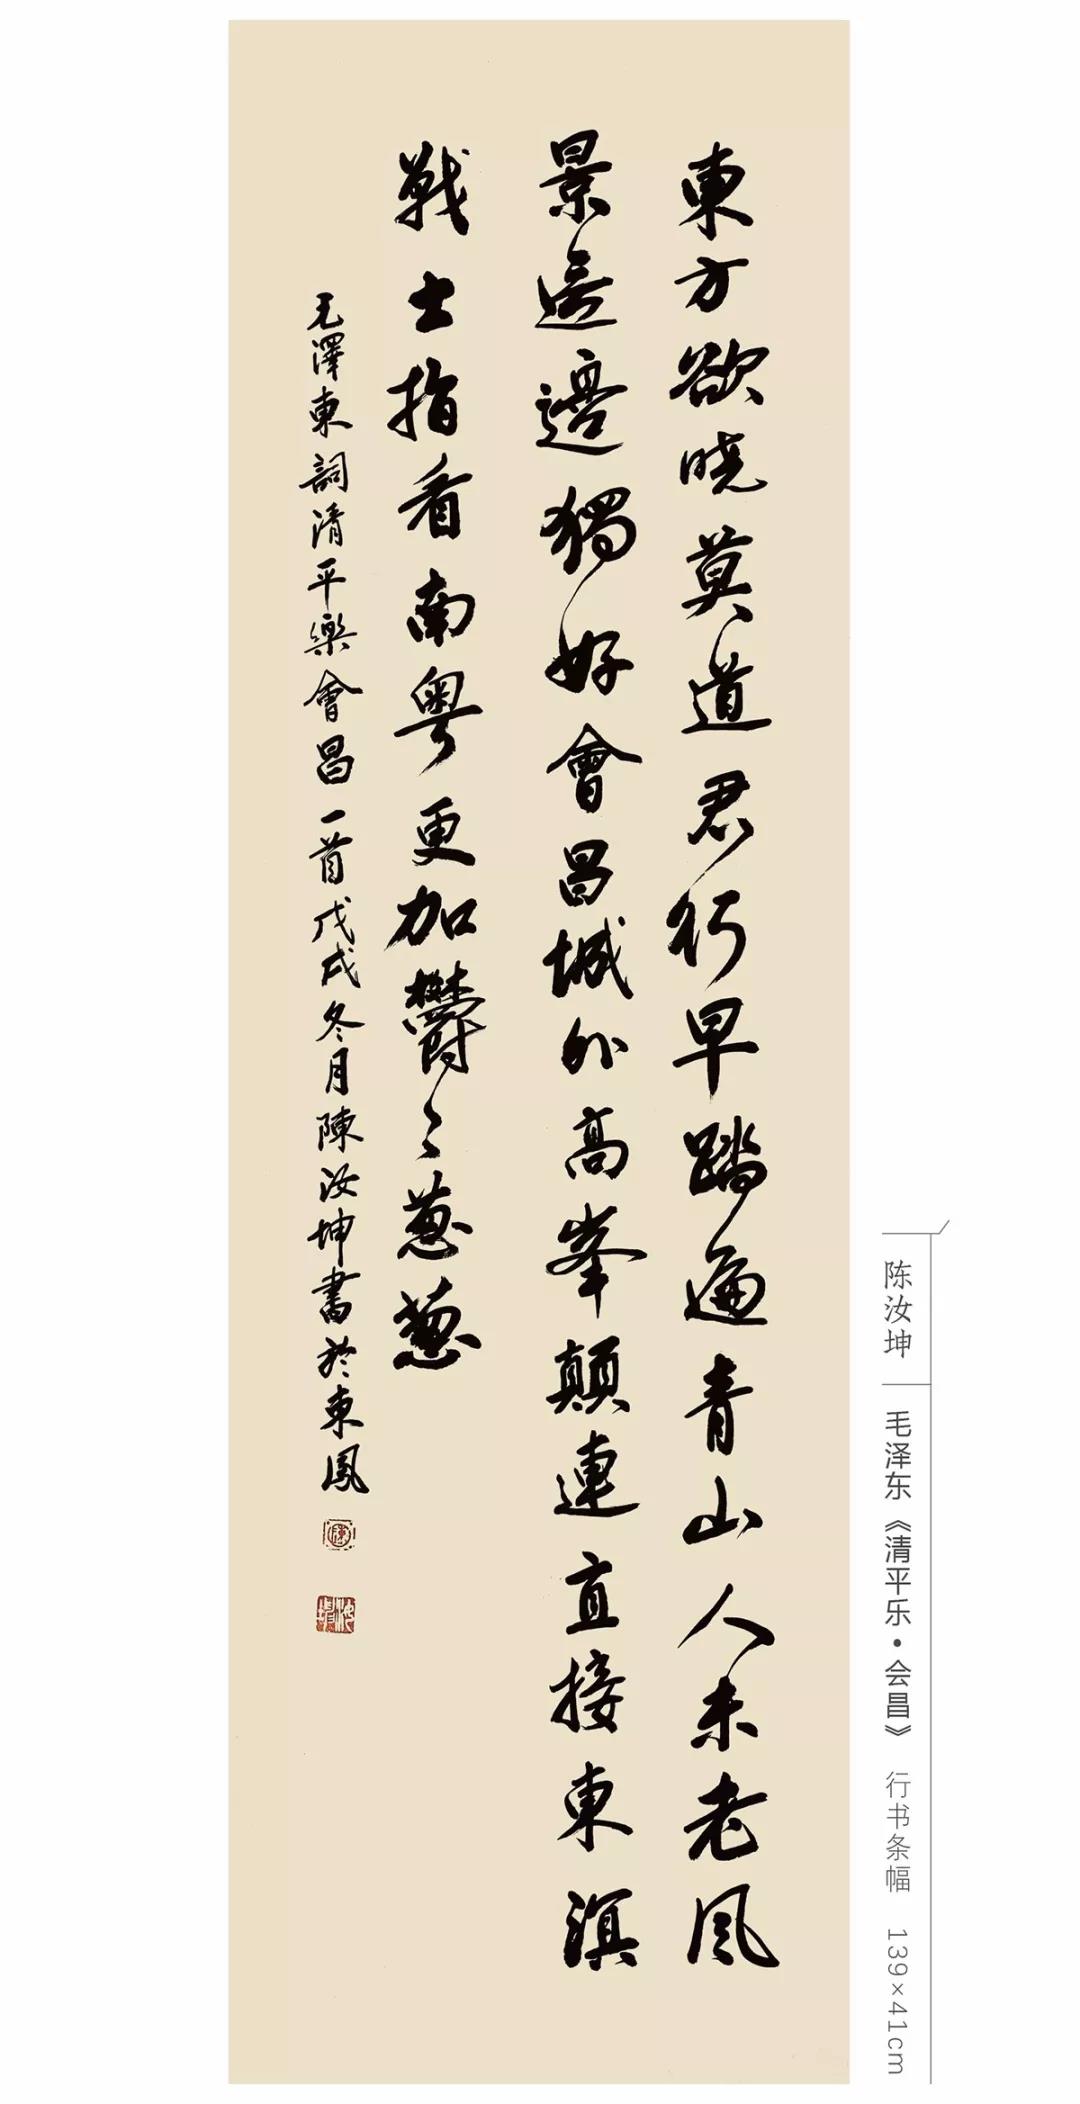 東方欲晓莫道君行早踏遍青山人未老風
景這邊獨好會昌城外高峯顛連直接東溟
戰士指看南粤更加欝々葱葱
毛澤東詞清平樂會昌一首戊戌冬月陳汝坤書於東鳳
陈汝坤 毛泽东《清平乐•会昌》 行书条幅 139×41cm